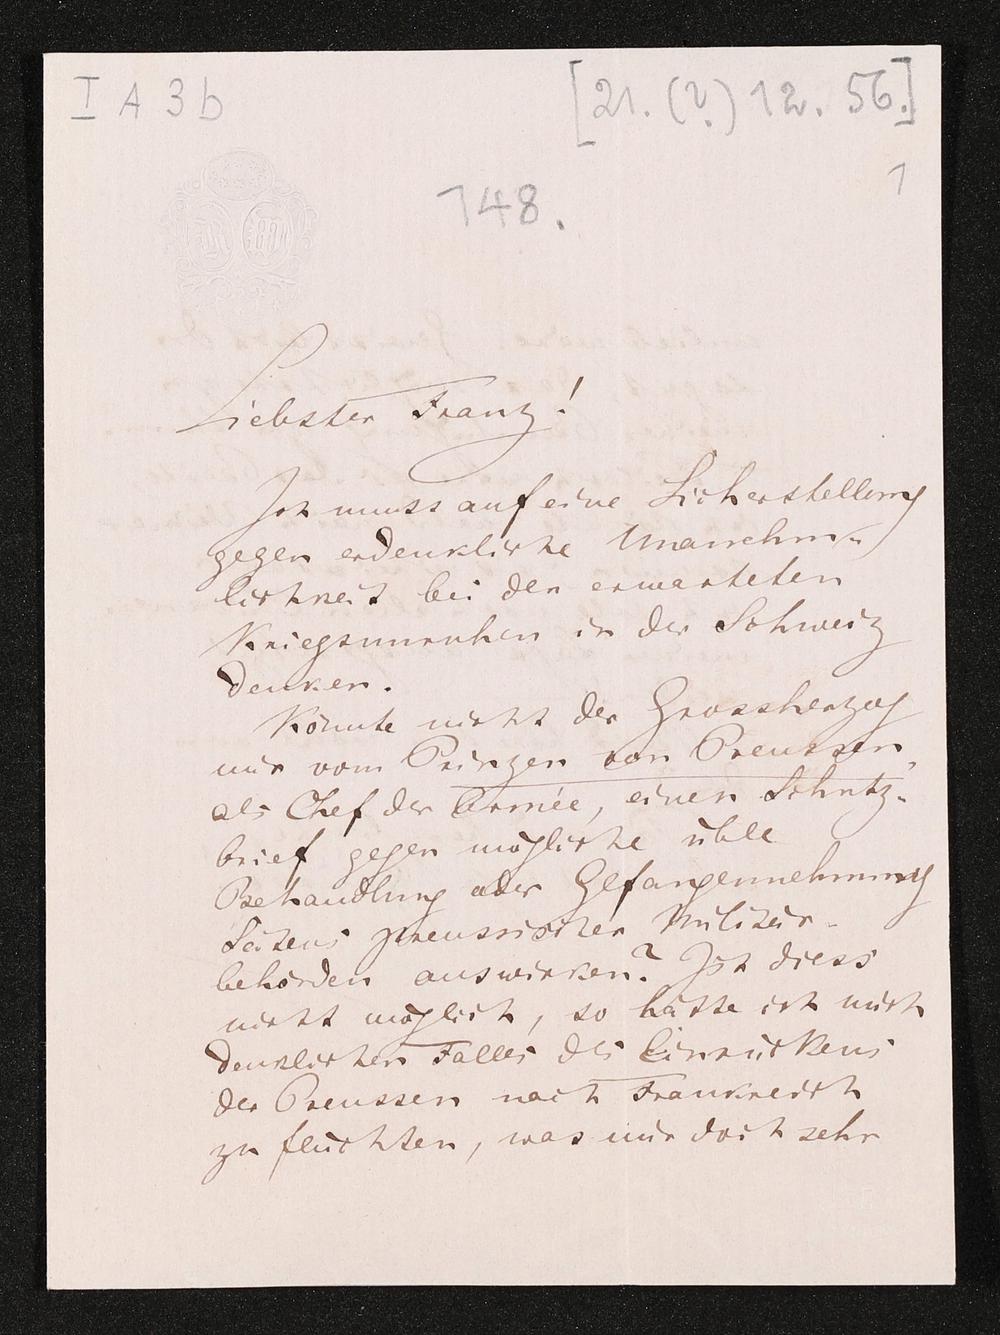 I A 3 b
[21. (?) 12. 56.]
1
148.
Liebster Franz!
Ich muss auf eine Sicherstellung
gegen erdenkliche Unannehm-
lichkeit bei den erwarteten
Kriegsunruhen in der Schweiz
denken.
Könnte nicht der Grossherzog
mir vom Prinzen von Preussen,
als Chef der Armée, einen Schutz-
brief gegen mögliche üble
Behandlung oder Gefangennehmung
Seitens preussischer Militär-
behörden auswirken? Ist diess
nicht möglich, so hätte ich mich
denklichen Falles des Einrückens
der Preussen nach Frankreich
zu flüchten, was mir doch sehr